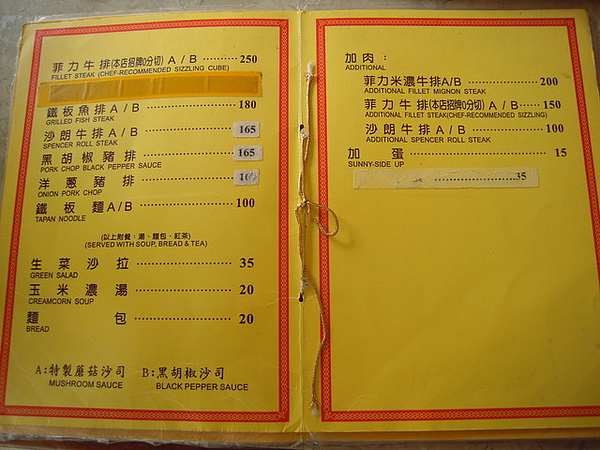 菲力牛排(本店招牌0分切) A / B ········· 250
FILLET STEAK (CHEF-RECOMMENDED SIZZLING CUBE)
鐵板魚排 A / B ········· 180
GRILLED FISH STEAK
沙朗牛排 A / B ········· 165
SPENCER ROLL STEAK
黑胡椒豬排 ········· 165
PORK CHOP BLACK PEPPER SAUCE
洋蔥豬排 ·········
ONION PORK CHOP
鐵板麵 A / B ········· 100
TAPAN NOODLE
(以上附餐：湯、麵包、紅茶)
(SERVED WITH SOUP, BREAD & TEA)
生菜沙拉 ········· 35
GREEN SALAD
玉米濃湯 ········· 20
CREAMCORN SOUP
麵包 ········· 20
BREAD
A:特製蘑菇沙司 B:黑胡椒沙司
MUSHROOM SAUCE BLACK PEPPER SAUCE
加肉：
ADDITIONAL
菲力米濃牛排A/B ········· 200
ADDITIONAL FILLET MIGNON STEAK
菲力牛排(本店招牌0分切) A / B ······ 150
ADDITIONAL FILLET STEAK(CHEF-RECOMMENDED SIZZLING)
沙朗牛排 A / B ········· 100
ADDITIONAL SPENCER ROLL STEAK
加蛋 ········· 15
SUNNY-SIDE UP
········· 35